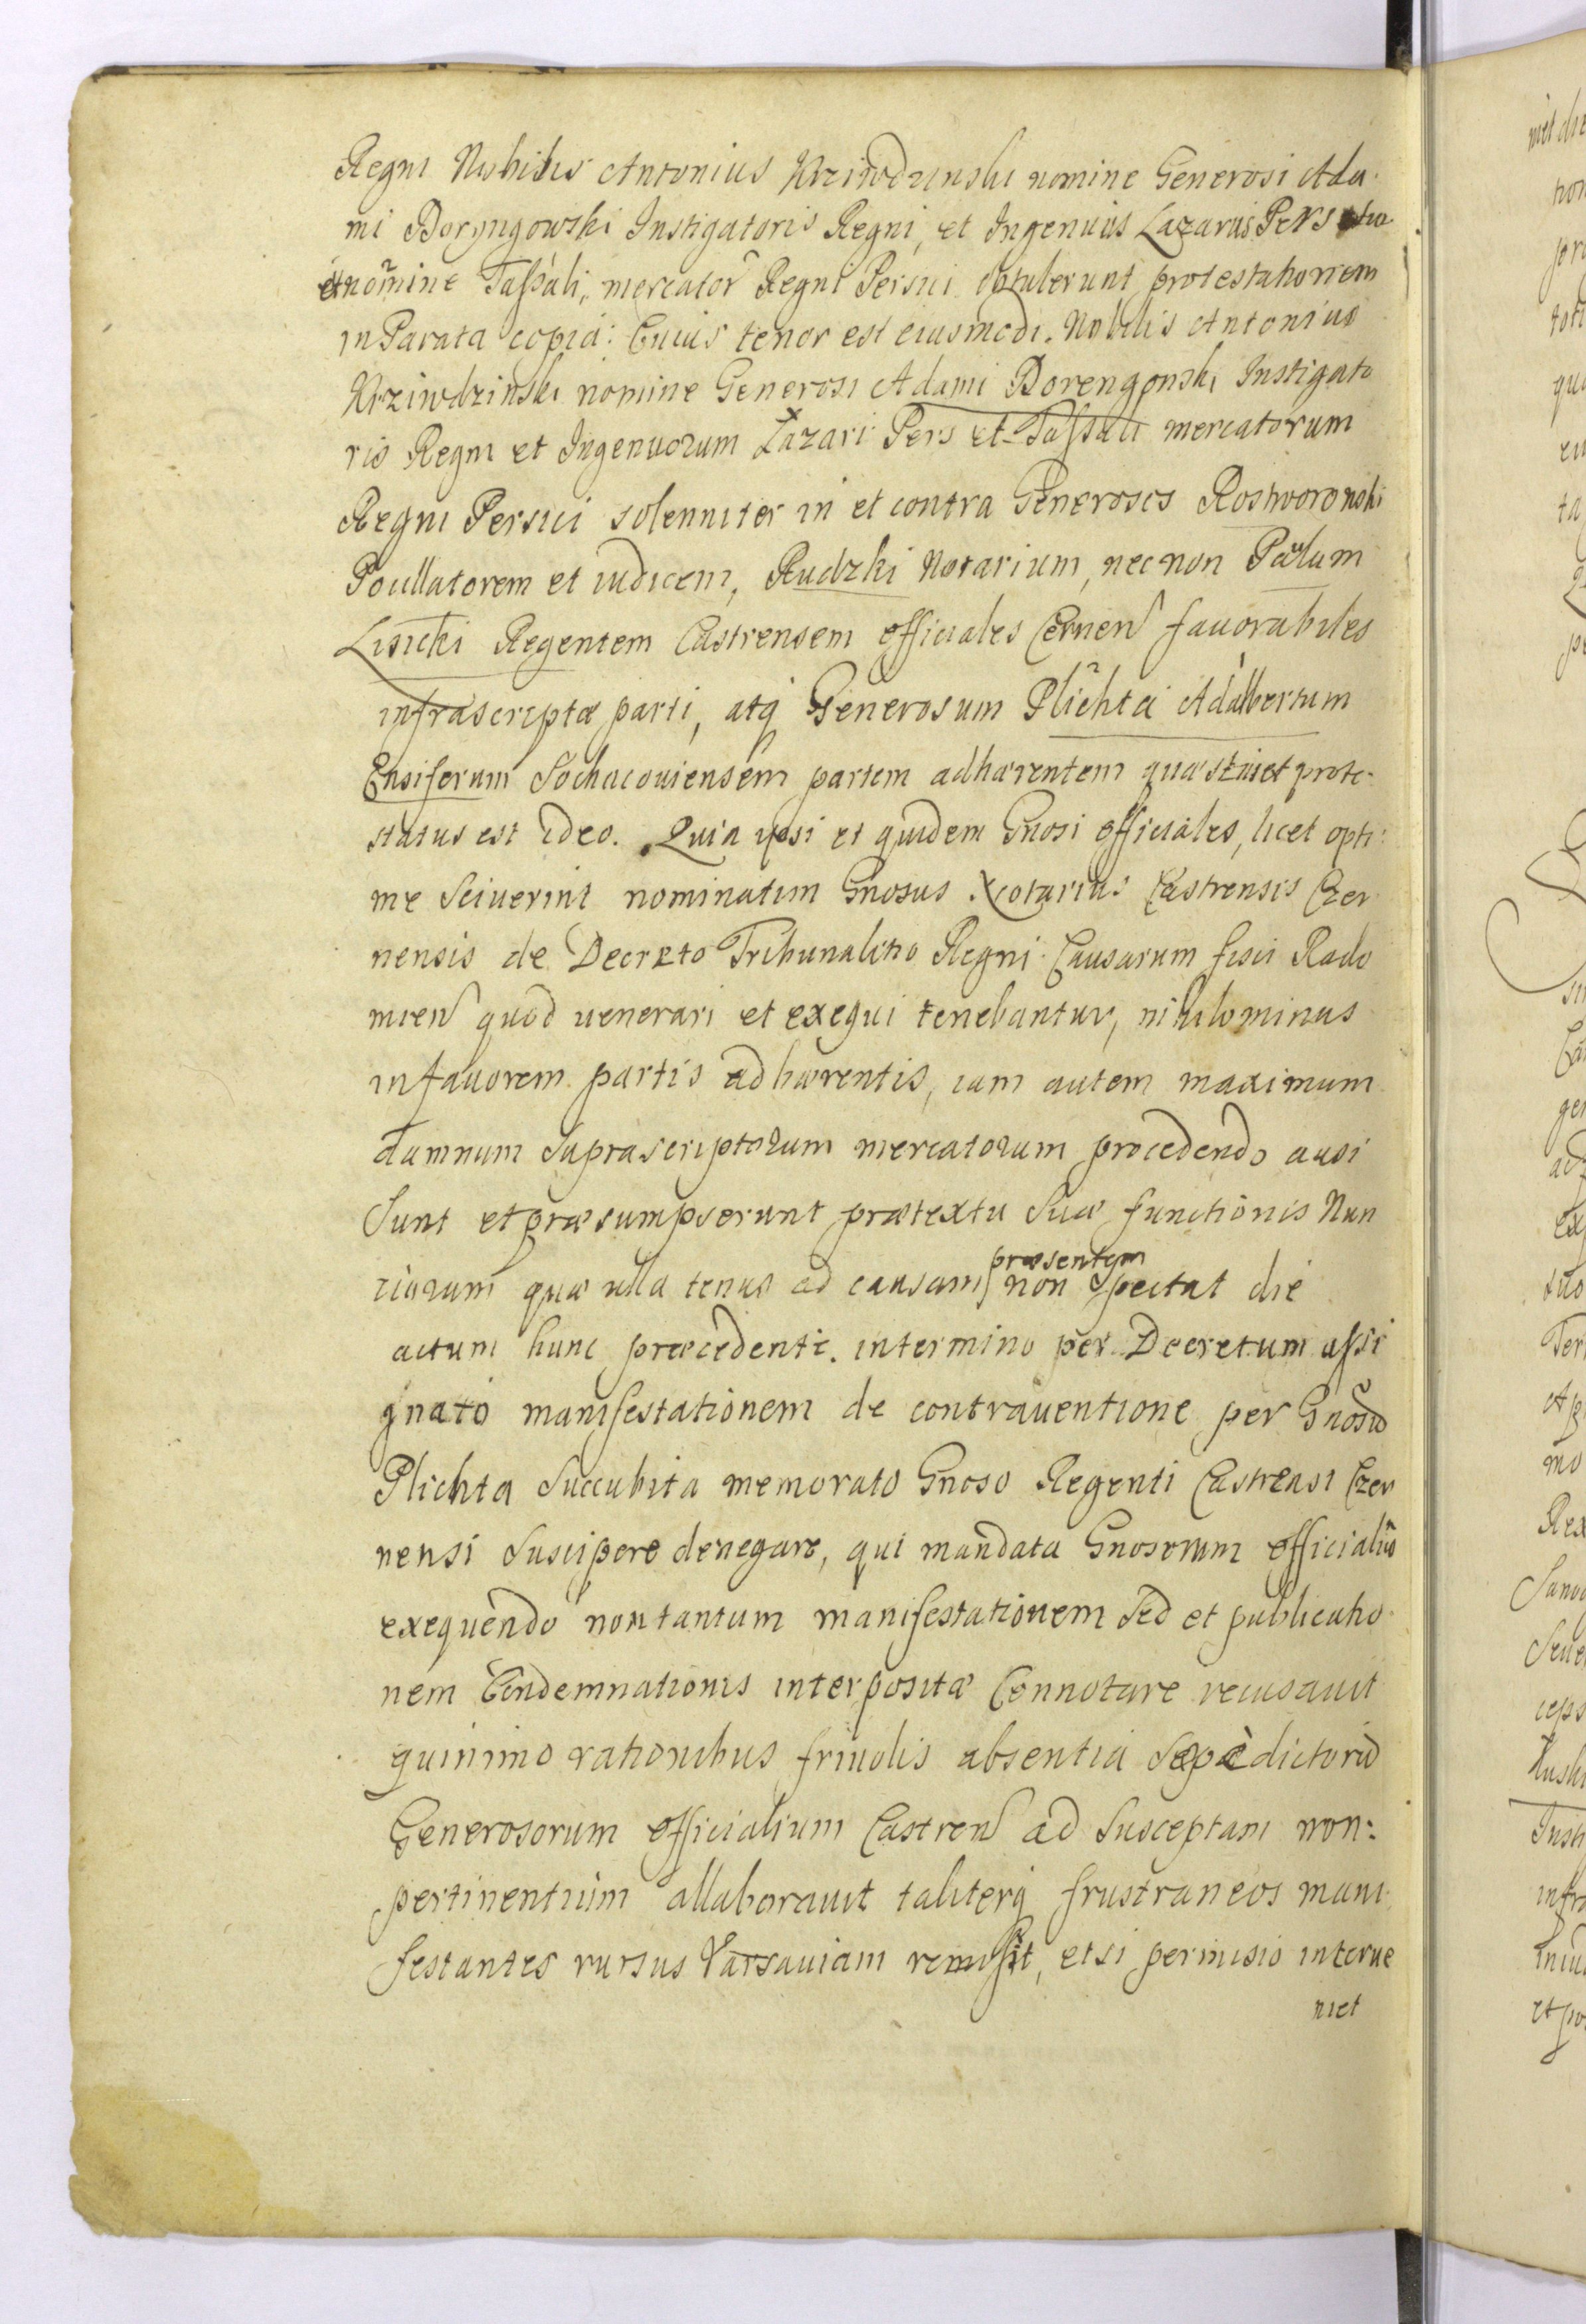 Regni Nobilis Antonius Krziwdzinski nomine Generosi Ada-
mi Boryngowski Instigatoris Regni, et Ingenuus Lazarus Pers suo
et noĩne Taſsali, mercatoř Regni Persici obtulerunt protestationem
in Parata copia: Cuius tenor est eiusmodi. Nobilis Antonius
Krziwdzinski nomine Generosi Adami Borengowski Instigato
ris Regni et Ingenuorum Lazari Pers et Taſsali mercatorum
Regni Persici solenniter in et contra Generosos Rostworowski
Pocillatorem et iudicem, Rudzki Notarium, nec non Paulum
Lisicki Regentem Castrensem officiales Cernen̄ fauorabiles
infrascriptæ parti, atq́ Generosum Plichta Adalbertum
Ensiferum Sochacouiensem partem adhærentem quæstus et prote-
status est ideo. Quia ipsi et quidem Gnosi officiales, licet opti-
me sciuerint nominatim Gnosus Notarius Castrensis Czer
nensis de Decreto Tribunalitio Regni Causarum fisci Rado
mien̄ quod uenerari et exequi tenebantur, nihilominus
in fauorem partis adhærentis, iam autem maximum
damnum suprascriptorum mercatorum procedendo ausi
sunt et præsumpserunt prætextu suæ functionis Nun
tiorum quæ ulla tenus ad causam præsentem non spectat die
actum hunc præcedente. in termino per Decretum aſsi
gnato manifestationem de contrauentione per Gnosũ
Plichta succubita memorato Gnoso Regenti Castrensi Czer
nensi suscipere denegare, qui mandata Gnosorum officialiũ
exequendo non tantum manifestationem sed et publicatio-
nem Condemnationis interpositæ Connotare recusauit
quinimo rationibus friuolis absentia sæpè dictorũ
Generosorum officialium Castren̄ ad susceptam non:
pertinentium allaborauit taliterq́ frustraneos mani-
festantes rursus Varsauiam remisit, etsi permisio interue
niet